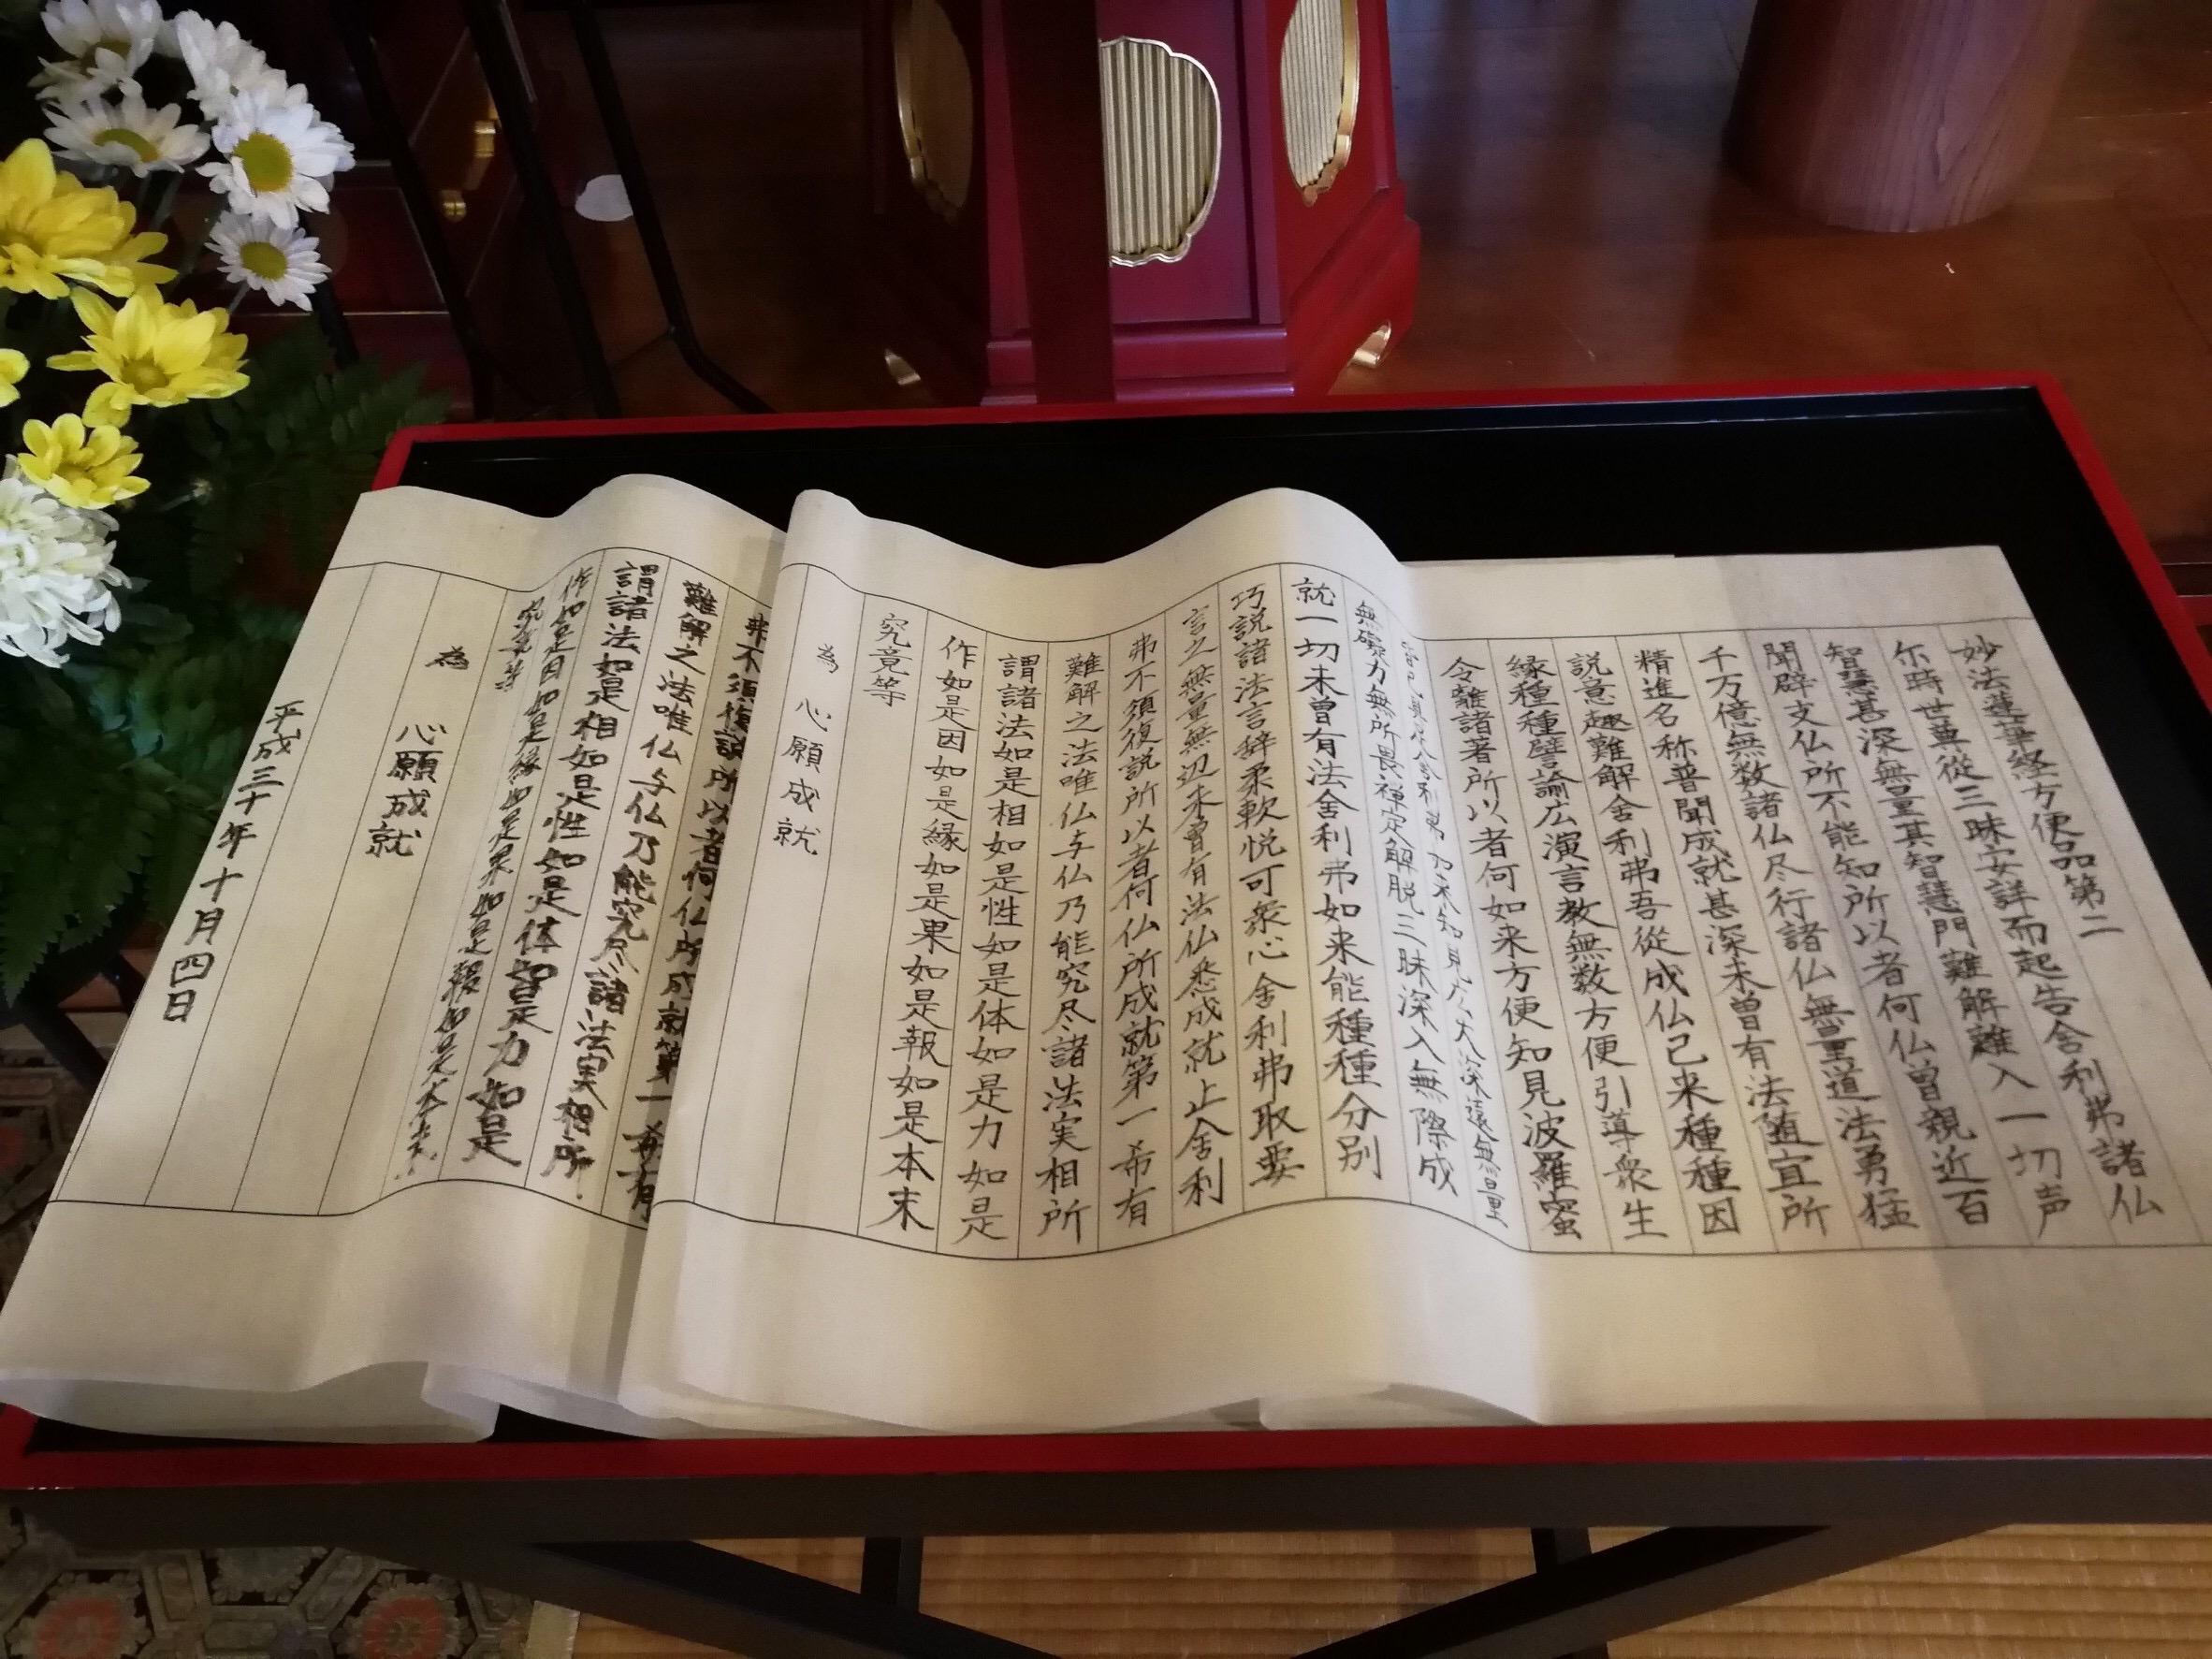 妙法蓮華経方便品第二
尓時世尊従三昧安詳而起告舎利弗諸仏
智慧甚深無量其智慧門難解難入一切声
聞辟支仏所不能知所以者何仏曽親近百
千万億無数諸仏尽行諸仏無量道法勇猛
精進名称普聞成就甚深未曽有法随宜所
説意趣難解舎利弗吾従成仏已来種種因
縁種種譬諭広演言教無数方便引導衆生
令離諸著所以者何如来方便知見波羅蜜
舎利弗如来知見広大深遠無量
無礙力無所畏禅定解脱三昧深入無際成
就一切未曽有法舎利弗如来能種種分別
巧説諸法言辞柔軟悦可衆心舎利弗取要
言之無量無辺未曽有法仏悉成就止舎利
弗不須復説所以者何仏所成就第一希有
難解之法唯仏与仏乃能究尽諸法実相所
謂諸法如是相如是性如是体如是力如是
作如是因如是縁如是果如是報如是本末
究竟等
為 心願成就
弗不須復説所以者何仏所成就第一希有
難解之法唯仏与仏乃能究尽諸法実相所
謂諸法如是相如是性如是体如是力如是
作如是因如是縁如是果如是報如是本末
究竟等
為 心願成就
平成三十年十月四日